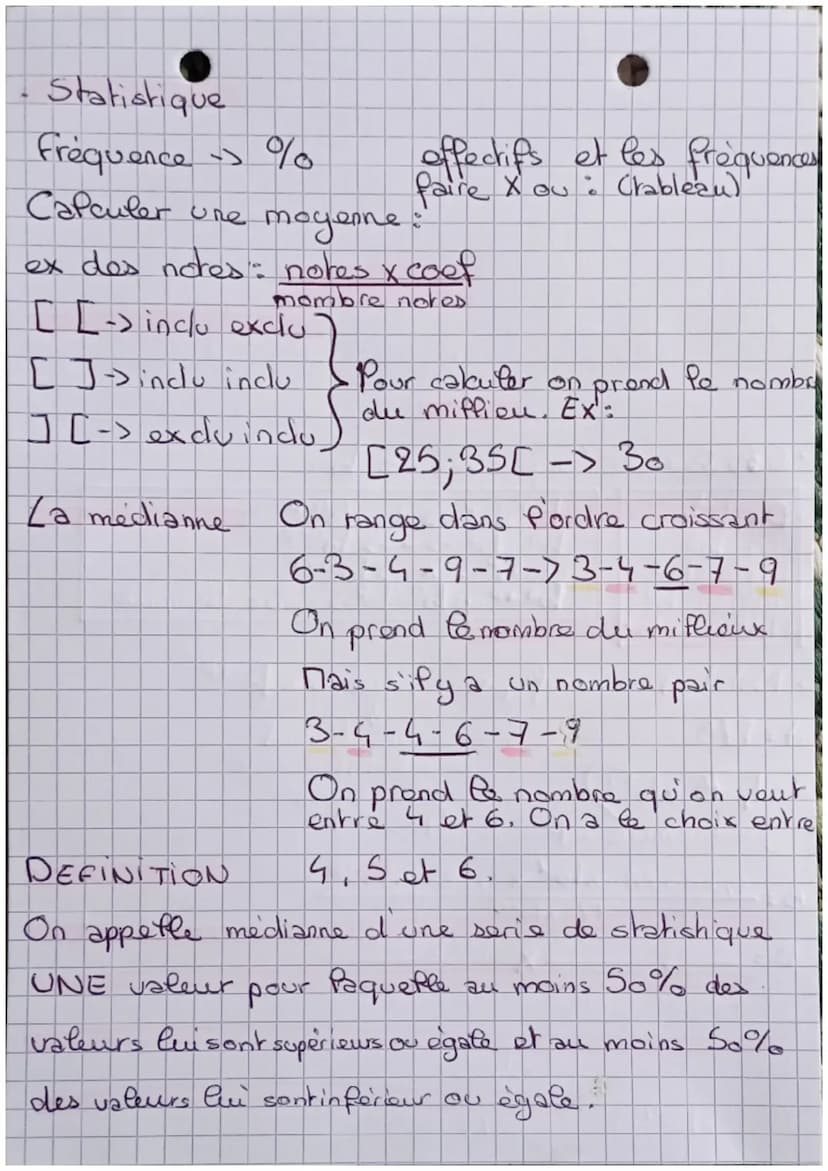 . Statistique
Fréquence -> % effectifs et les fréquences
faire X ou : (tableau)
Calculer une moyenne :
ex des notes : notes x coef
nombre notes
[ [ -> inclu exclu
[ ] -> inclu inclu
Pour calculer on prend le nombre
du millieu. Ex :
] [ -> exclu inclu
[25;35[ -> 30
La médianne On range dans l'ordre croissant
6-3-4-9-7-> 3-4-6-7-9
On prend le nombre du millieux
Mais s'il y a un nombre pair
3-4-4-6-7-9
On prend le nombre qu'on veut
entre 4 et 6. On a le choix entre
DEFINITION 4, 5 et 6.
On appelle médianne d'une série de statistique
UNE valeur pour laquelle au moins 50% des
valeurs lui sont supérieurs ou égale et au moins 50%
des valeurs lui sont inférieur ou égale.